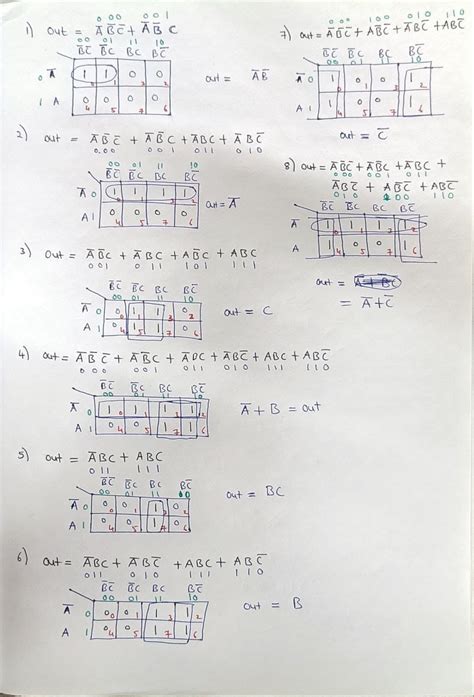 000 001
1) out = A̅B̅C̅ + A̅B̅C
00 01 11 10
B̅C̅ B̅C BC BC̅
0 A̅ 1 0 1 1 0 3 0 2
1 A 0 4 0 5 0 7 0 6
out = A̅B̅
2) out = A̅B̅C̅ + A̅B̅C + A̅BC + A̅BC̅
000 001 011 010
00 01 11 10
B̅C̅ B̅C BC BC̅
A̅ 0 1 0 1 1 1 3 1 2
A 1 0 4 0 5 0 7 0 6
out = A̅
3) out = A̅B̅C + A̅BC + AB̅C + ABC
001 011 101 111
B̅C̅ B̅C BC BC̅
00 01 11 10
A̅ 0 0 0 1 1 1 3 0 2
A 1 0 4 1 5 1 7 0 6
out = C
4) out = A̅B̅C̅ + A̅B̅C + A̅BC + A̅BC̅ + ABC + ABC̅
000 001 011 010 111 110
B̅C̅ B̅C BC BC̅
00 01 11 10
A̅ 0 1 0 1 1 1 3 1 2
A 1 0 4 0 5 1 7 1 6
A̅ + B = out
5) out = A̅BC + ABC
011 111
B̅C̅ B̅C BC BC̅
00 01 11 10
A̅ 0 0 0 0 1 1 3 0 2
A 1 0 4 0 5 1 7 0 6
out = BC
6) out = A̅BC + A̅BC̅ + ABC + ABC̅
011 010 111 110
B̅C̅ B̅C BC BC̅
00 01 11 10
A̅ 0 0 0 0 1 1 3 1 2
A 1 0 4 0 5 1 7 1 6
out = B
000 100 010 110
7) out = A̅B̅C̅ + AB̅C̅ + A̅BC̅ + ABC̅
B̅C̅ B̅C BC BC̅
00 01 11 10
A̅ 0 1 0 0 1 0 3 1 2
A 1 1 4 0 5 0 7 1 6
out = C̅
8) out = A̅B̅C̅ + A̅B̅C + A̅BC +
000 001 011
A̅BC̅ + AB̅C̅ + ABC̅
010 100 110
B̅C̅ B̅C BC BC̅
A̅ 1 0 1 1 1 3 1 2
A 1 4 0 5 0 7 1 6
out =
= A̅ + C̅